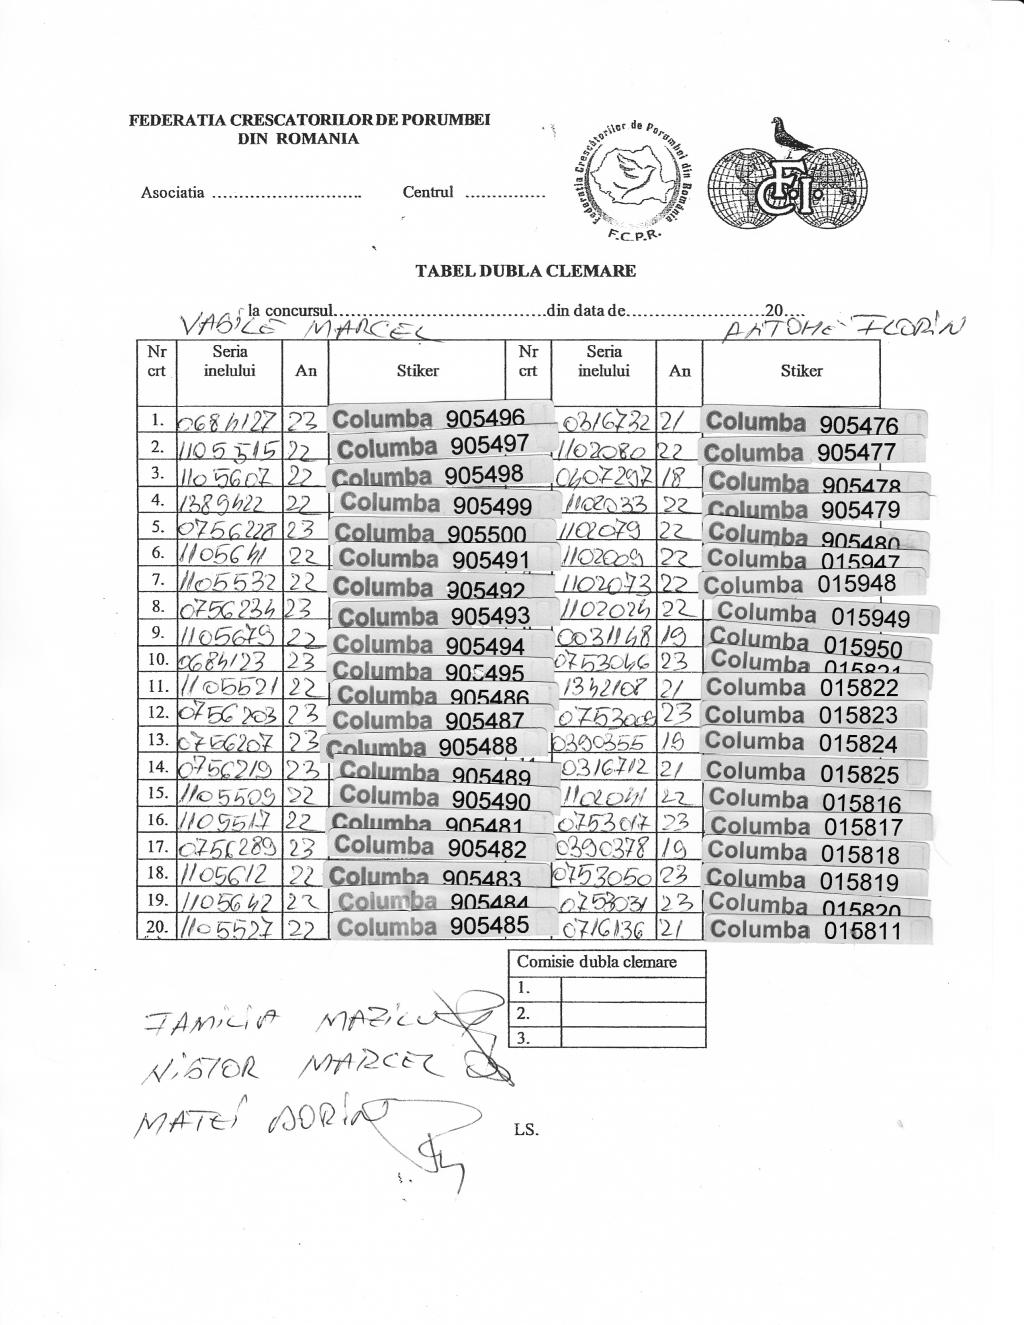 FEDERATIA CRESCATORILOR DE PORUMBEI
DIN ROMANIA
Federatia Crescătorilor de Porumbei din România
F.C.P.R.
F.C.I.
Asociatia ............................ Centrul ...............
TABEL DUBLA CLEMARE
la concursul........................................din data de..........................20....
VASILE MARCEL ANTOHE FLORIN
Nr crt Seria inelului An Stiker Nr crt Seria inelului An Stiker
1. 0684127 23 Columba 905496 0316732 21 Columba 905476
2. 1105515 22 Columba 905497 1102080 22 Columba 905477
3. 1105607 22 Columba 905498 0407297 18 Columba 905478
4. 1389422 22 Columba 905499 1102033 22 Columba 905479
5. 0756228 23 Columba 905500 1102079 22 Columba 905480
6. 1105641 22 Columba 905491 1102009 22 Columba 015947
7. 1105532 22 Columba 905492 1102073 22 Columba 015948
8. 0756234 23 Columba 905493 1102024 22 Columba 015949
9. 1105679 22 Columba 905494 0031148 19 Columba 015950
10. 0684123 23 Columba 905495 0753046 23 Columba 015821
11. 1105521 22 Columba 905486 1342108 21 Columba 015822
12. 0756203 23 Columba 905487 0753009 23 Columba 015823
13. 0756207 23 Columba 905488 0390355 19 Columba 015824
14. 0756219 23 Columba 905489 0316712 21 Columba 015825
15. 1105509 22 Columba 905490 1102041 22 Columba 015816
16. 1105517 22 Columba 905481 0753017 23 Columba 015817
17. 0756289 23 Columba 905482 0390378 19 Columba 015818
18. 1105612 22 Columba 905483 0753050 23 Columba 015819
19. 1105642 22 Columba 905484 0753031 23 Columba 015820
20. 1105527 22 Columba 905485 0716136 21 Columba 015811
Comisie dubla clemare
1.
2.
3.
FAMILIA MAZILU
NISTOR MARCEL
MATEI DORIN
LS.